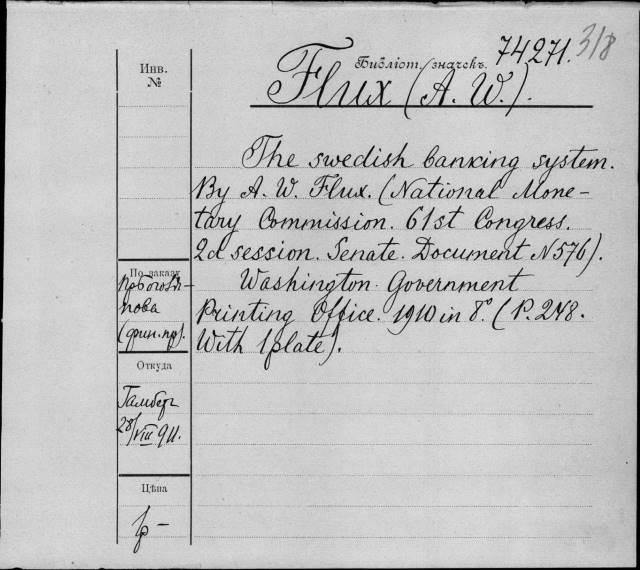 74271. 318
Библіот. значекъ.
Flux (A. W.).
Инв.
№
The swedish banking system.
By A. W. Flux. (National Mone-
tary Commission. 61st Congress.
2d session. Senate. Document N 576).
Washington. Government
Printing Office. 1910 in 8°. (P. 248.
With 1 plate).
По заказу
нова
(фин. пр).
Откуда
28/VIII 911.
Цѣна